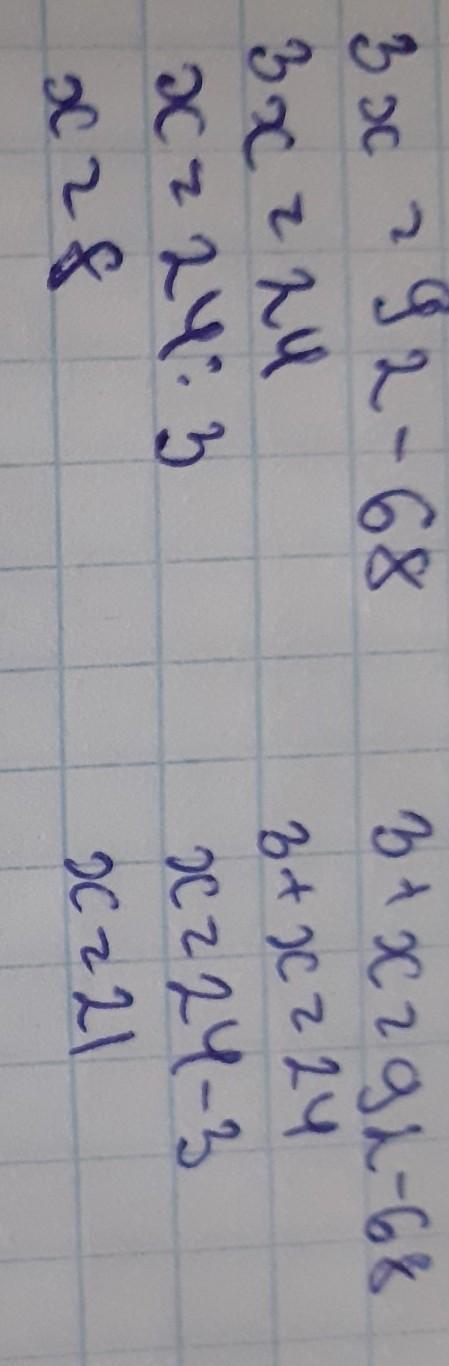 3x = 92 - 68
3x = 24
x = 24 : 3
x = 8
3 + x = 92 - 68
3 + x = 24
x = 24 - 3
x = 21